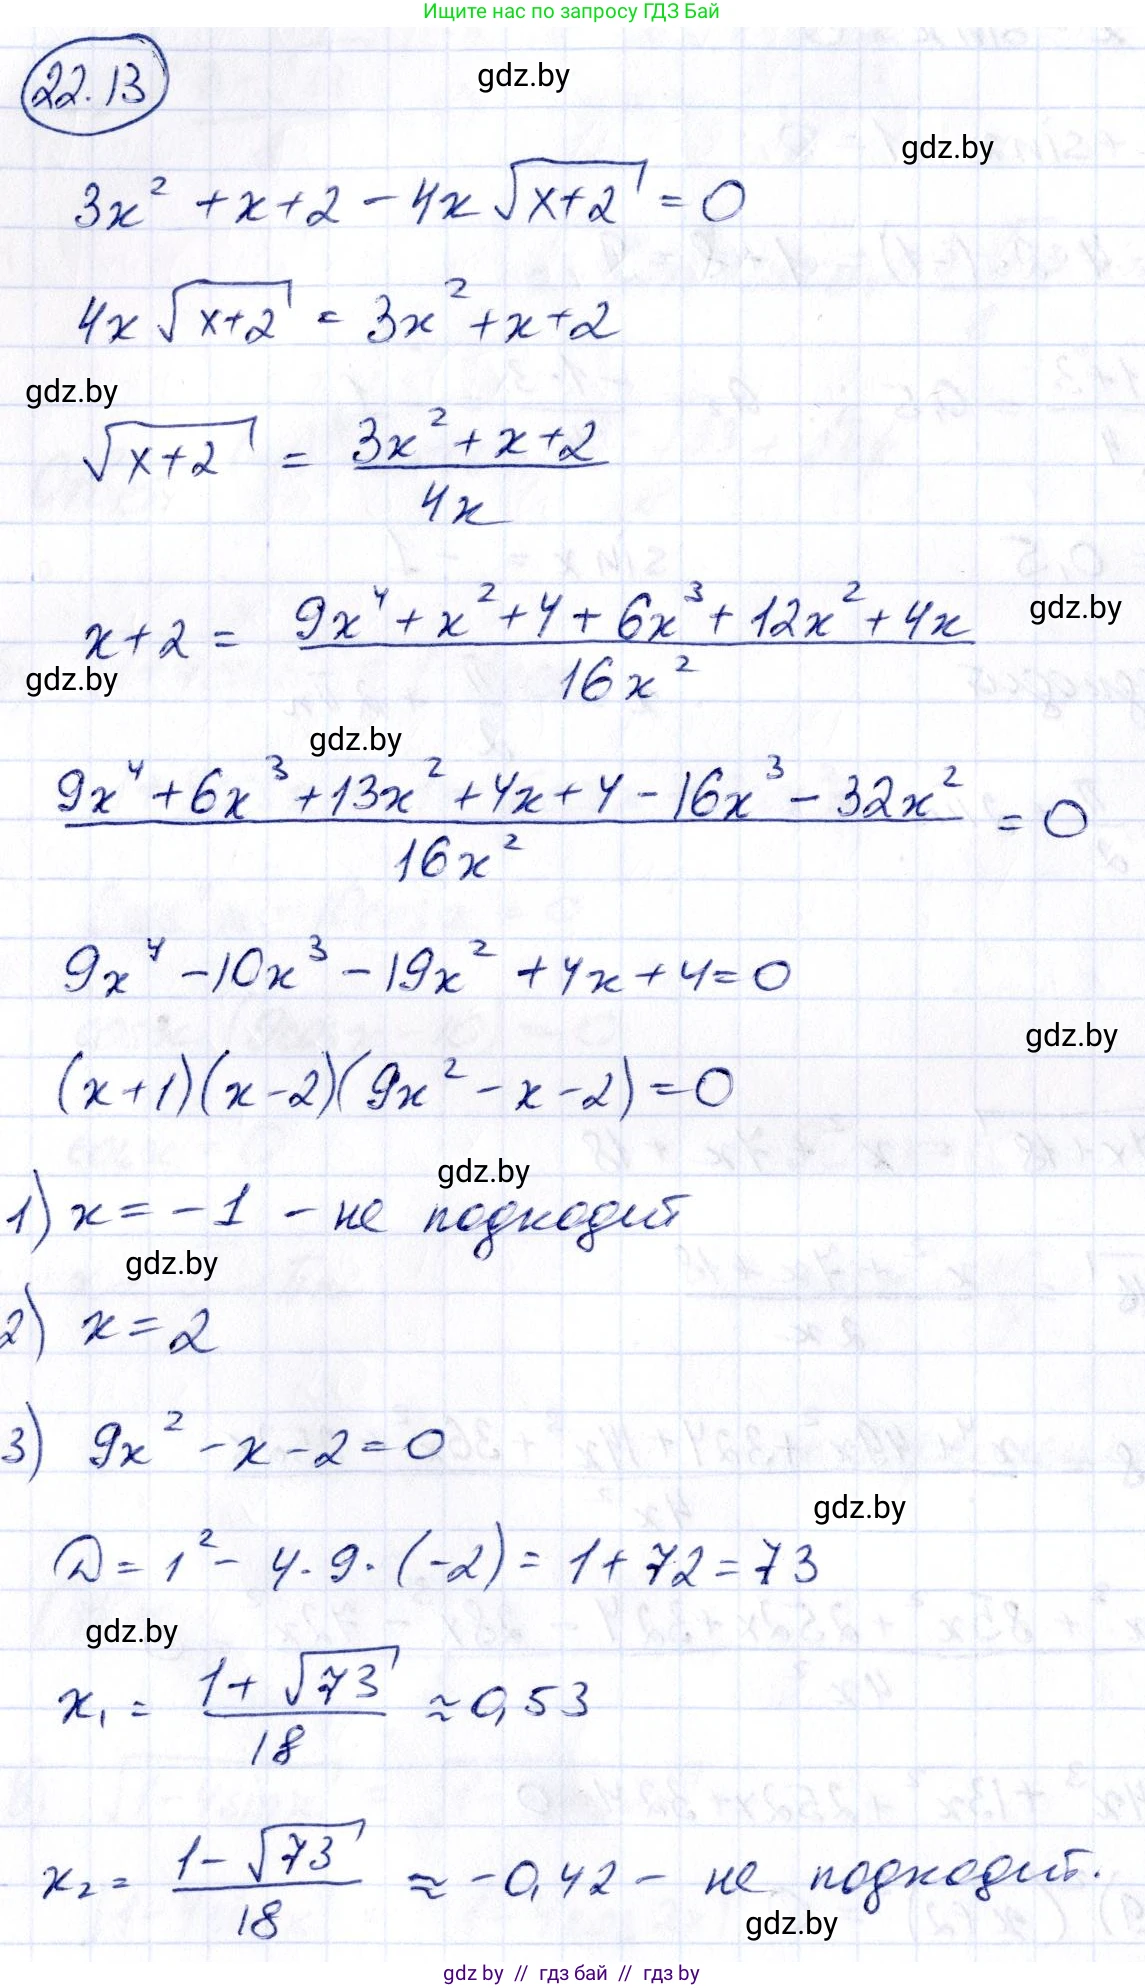 Ищите нас по запросу ГДЗ Бай
22.13
gdz.by
gdz.by
3x² + x + 2 - 4x √(x+2) = 0
4x √(x+2) = 3x² + x + 2
gdz.by
√(x+2) = (3x² + x + 2) / 4x
x + 2 = (9x⁴ + x² + 4 + 6x³ + 12x² + 4x) / 16x²
gdz.by
gdz.by
gdz.by
(9x⁴ + 6x³ + 13x² + 4x + 4 - 16x³ - 32x²) / 16x² = 0
9x⁴ - 10x³ - 19x² + 4x + 4 = 0
gdz.by
(x+1)(x-2)(9x² - x - 2) = 0
gdz.by
1) x = -1 - не подходит
gdz.by
2) x = 2
3) 9x² - x - 2 = 0
gdz.by
D = 1² - 4·9·(-2) = 1 + 72 = 73
gdz.by
x₁ = (1 + √73) / 18 ≈ 0,53
x₂ = (1 - √73) / 18 ≈ -0,42 - не подходит.
gdz.by
gdz.by // гдз бай // гдз by